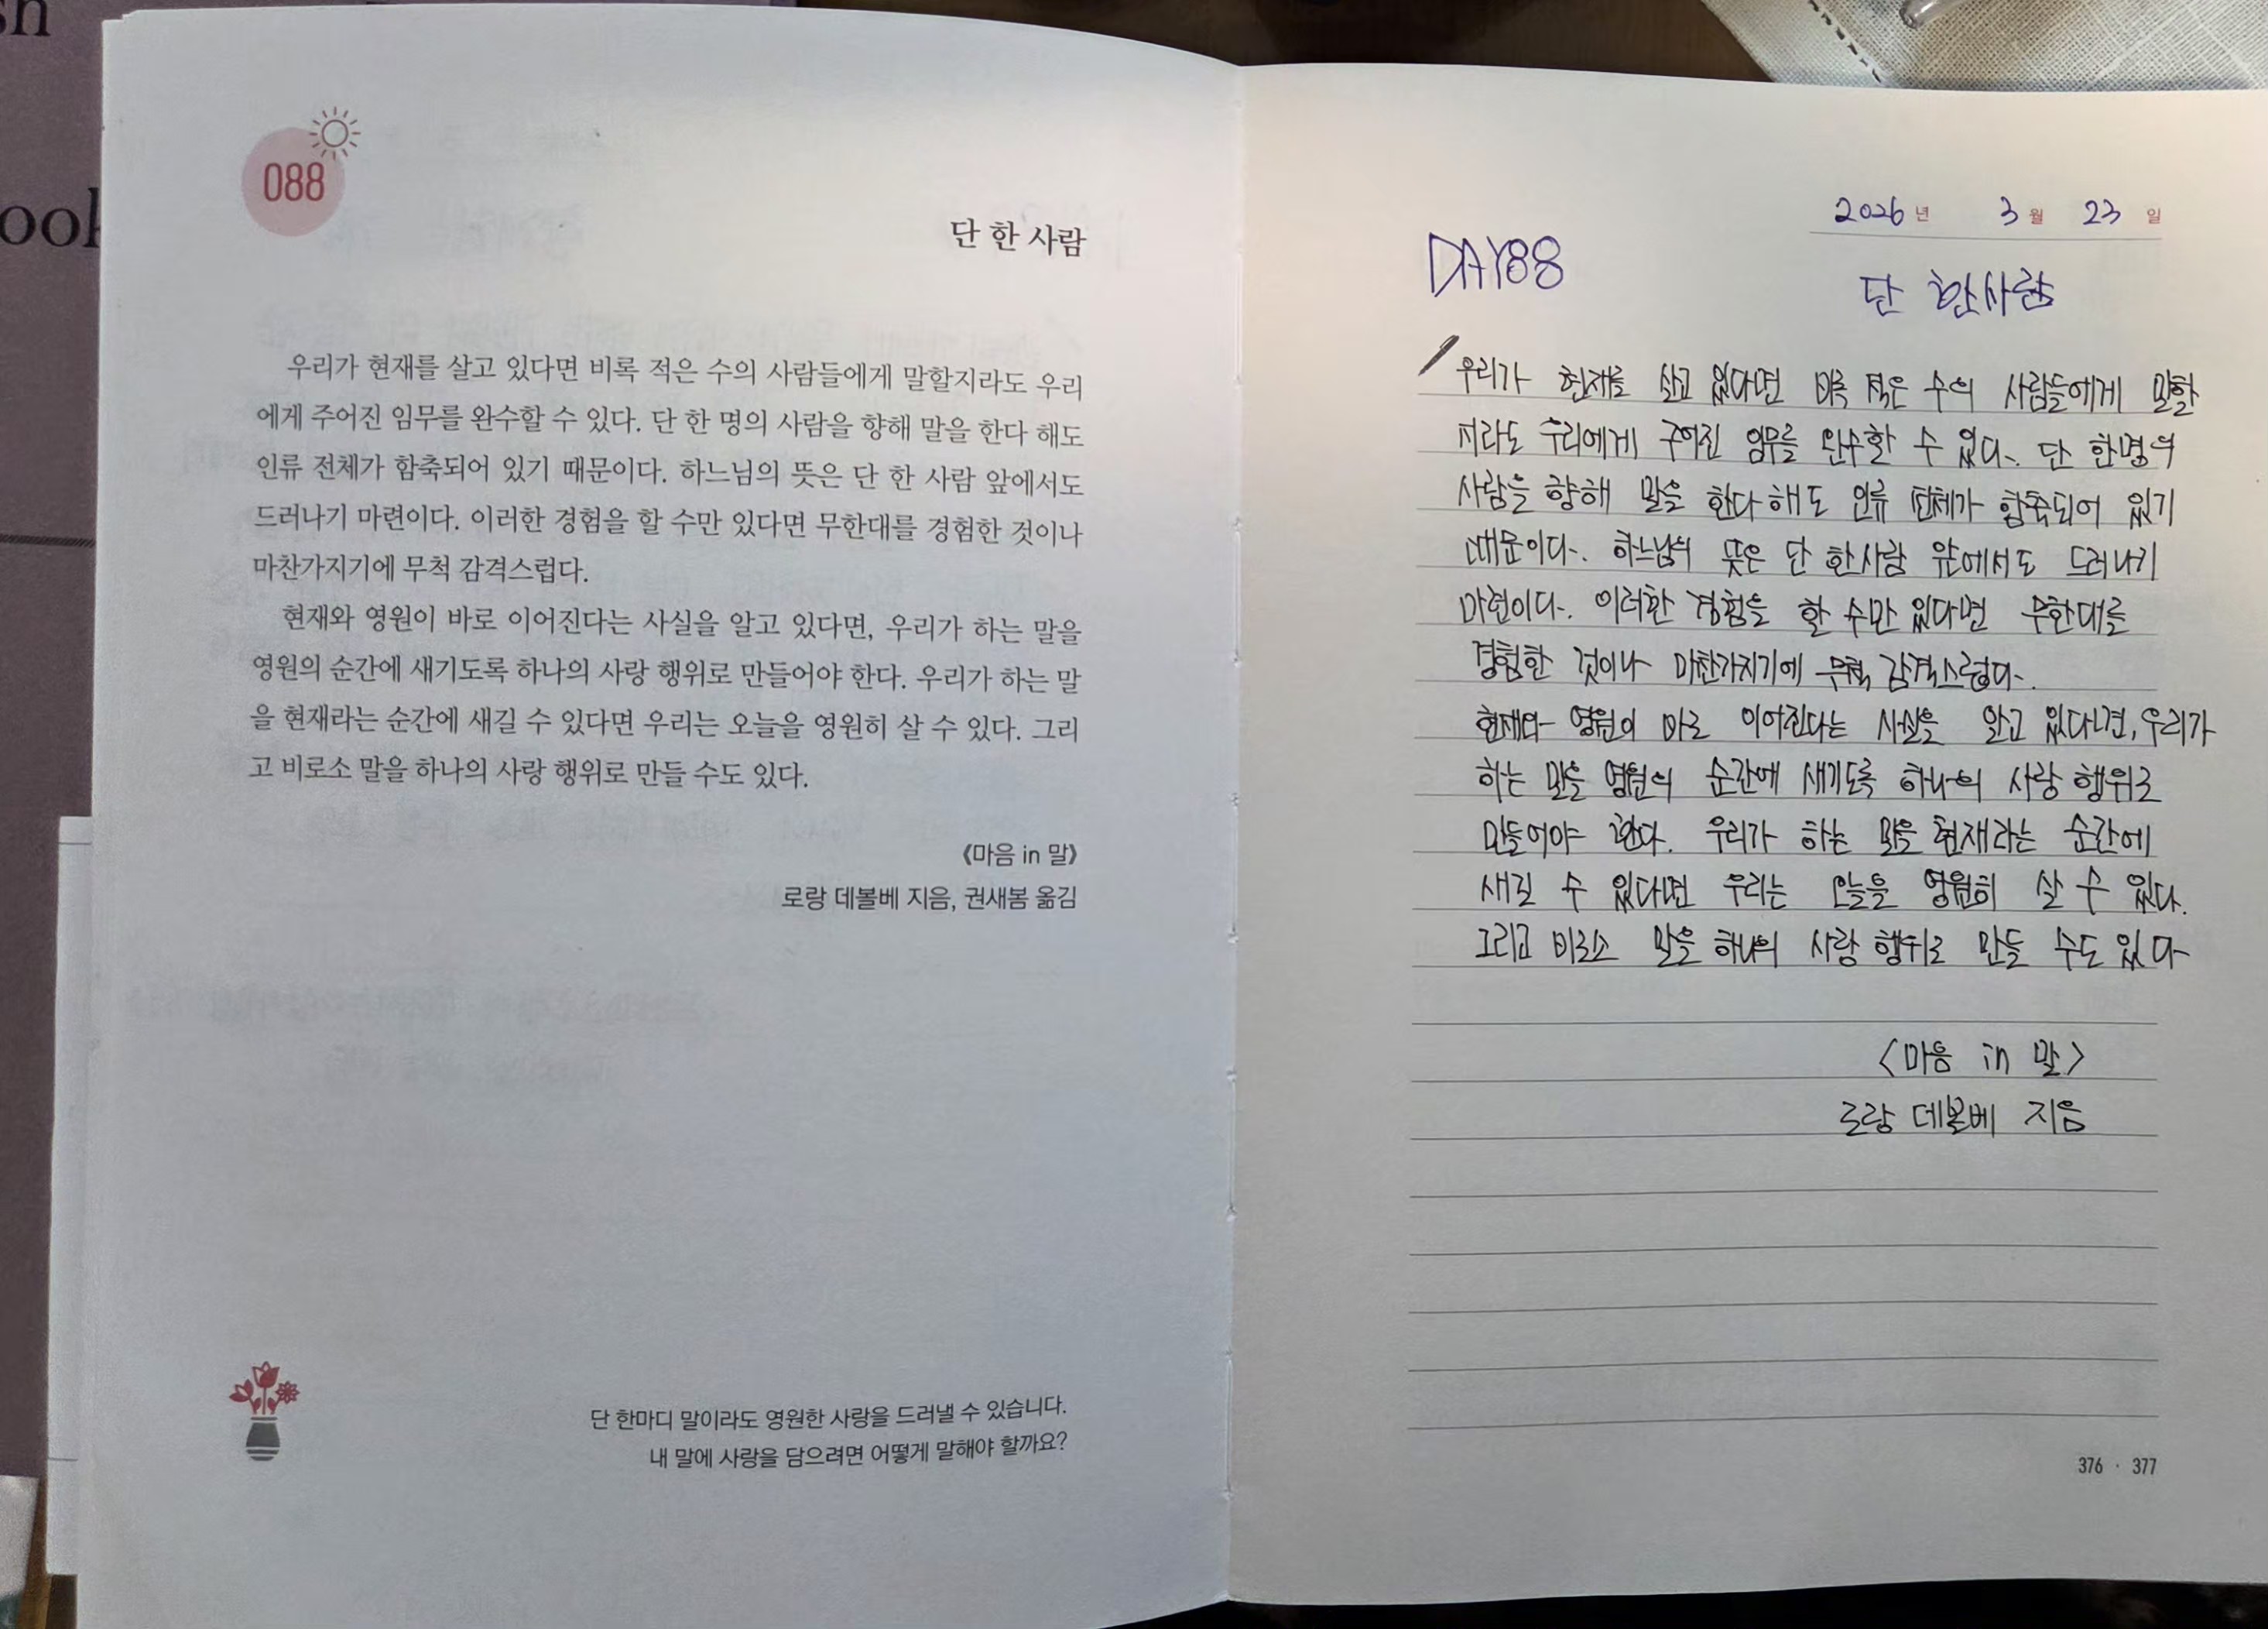 sh
ook
088
단 한 사람
우리가 현재를 살고 있다면 비록 적은 수의 사람들에게 말할지라도 우리
에게 주어진 임무를 완수할 수 있다. 단 한 명의 사람을 향해 말을 한다 해도
인류 전체가 함축되어 있기 때문이다. 하느님의 뜻은 단 한 사람 앞에서도
드러나기 마련이다. 이러한 경험을 할 수만 있다면 무한대를 경험한 것이나
마찬가지기에 무척 감격스럽다.
현재와 영원이 바로 이어진다는 사실을 알고 있다면, 우리가 하는 말을
영원의 순간에 새기도록 하나의 사랑 행위로 만들어야 한다. 우리가 하는 말
을 현재라는 순간에 새길 수 있다면 우리는 오늘을 영원히 살 수 있다. 그리
고 비로소 말을 하나의 사랑 행위로 만들 수도 있다.
《마음 in 말》
로랑 데볼베 지음, 권새봄 옮김
단 한마디 말이라도 영원한 사랑을 드러낼 수 있습니다.
내 말에 사랑을 담으려면 어떻게 말해야 할까요?
2026년 3월 23일
DAY88
단 한사람
우리가 현재를 살고 있다면 비록 적은 수의 사람들에게 말할
지라도 우리에게 주어진 임무를 완수할 수 있다. 단 한명의
사람을 향해 말을 한다 해도 인류 전체가 함축되어 있기
때문이다. 하느님의 뜻은 단 한사람 앞에서도 드러나기
마련이다. 이러한 경험을 할 수만 있다면 무한대를
경험한 것이나 마찬가지기에 무척 감격스럽다.
현재와 영원이 바로 이어진다는 사실을 알고 있다면, 우리가
하는 말을 영원의 순간에 새기도록 하나의 사랑 행위로
만들어야 한다. 우리가 하는 말을 현재라는 순간에
새길 수 있다면 우리는 오늘을 영원히 살 수 있다.
그리고 비로소 말을 하나의 사랑 행위로 만들 수도 있다
<마음 in 말>
로랑 데볼베 지음
376 · 377